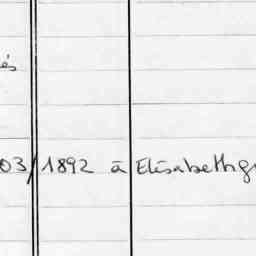 és
03/1892 à Elisabethg